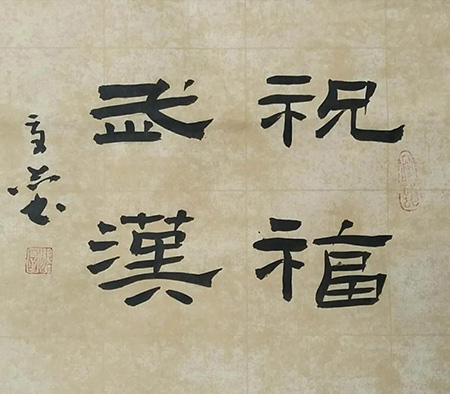 祝福
武漢